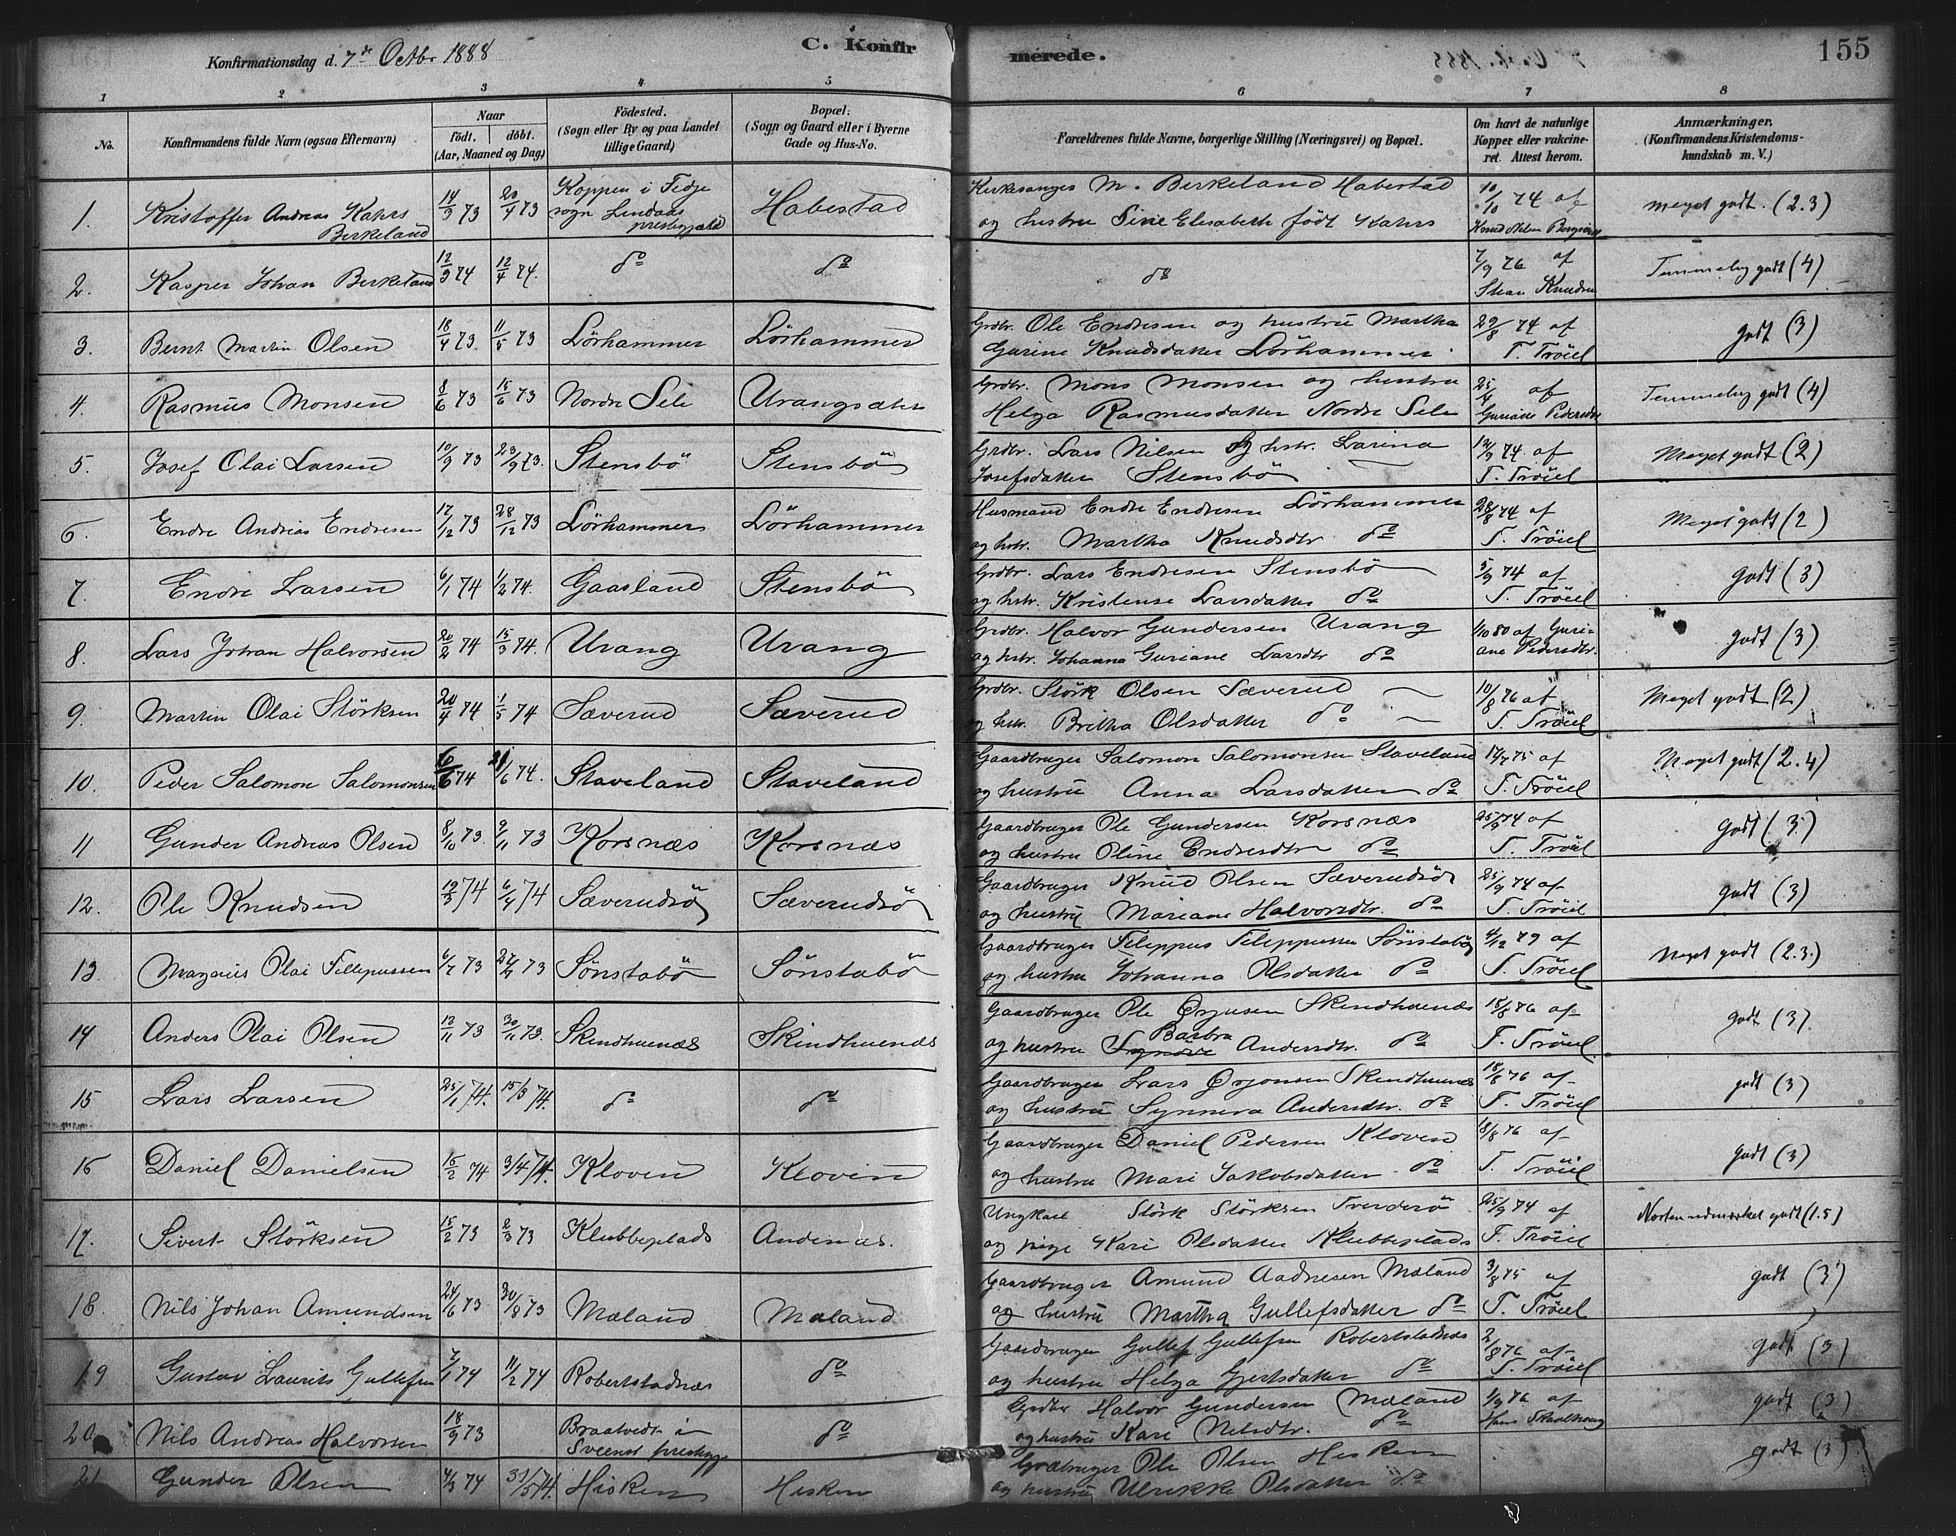 Konfirmationsdag d. 7de Octbr 1888
C. Konfirmerede.
155
1 2 3 4 5 6 7 8
No.
Konfirmandens fulde Navn (ogsaa Efternavn)
Naar
født. døbt.
(Aar, Maaned og Dag)
Födested.
(Sogn eller By og paa Landet
tillige Gaard)
Bopæl:
(Sogn og Gaard eller i Byerne
Gade og Hus-No.
Forældrenes fulde Navne, borgerlige Stilling (Næringsvei) og Bopæl.
Om havt de naturlige
Kopper eller vakcine-
ret. Attest herom.
Anmærkninger.
(Konfirmandens Kristendoms-
kundskab m. V.)
1. Kristoffer Andreas Kahrs Birkeland 14/3 73 20/4 73 Koppen i Fedje sogn Lindaas prestegjæld Habestad
Kirkesanger M. Birkeland Habestad
og hustru Sine Elisabeth født Kahrs
10/10 74 af Knud Nilsen
meget godt. (2.3)
2. Kasper Johan Birkeland 12/3 74 12/4 74. do do
do
7/9 76 af Knudsen
Temmelig godt (4)
3. Bernt Martin Olsen 18/4 73. 11/5 73 Lörhammer Lörhammer
Grdbr. Ole Endresen og hustru Martha
Gurine Knudsdatter Lörhammer
29/8 74 af T. Tröiel
godt (3)
4. Rasmus Monsen 8/6 73 15/6 73 Nordre Sele Urangsæter
Grdbr. Mons Monsen og hustru
Helga Rasmusdatter Nordre Sele
25/4 af Guriane Pedersdtr
Temmelig godt (4)
5. Josef Olai Larsen 10/9 73 23/9 73. Stensbö Stensbö
Grdbr. Lars Nilsen og hstr. Larina
Josefsdatter Stensbö
12/9 74 af T. Tröiel
Meget godt (2)
6. Endre Andreas Endresen 17/12 73 28/12 73 Lörhammer Lörhammer
Husmand Endre Endresen Lörhammer
og hstr. Martha Knudsdtr. do
28/8 74 af T. Tröiel
Meget godt (2)
7. Endre Larsen 6/1 74 1/2 74. Gaasland Stensbö
Grdbr. Lars Endresen Stensbö
og hstr. Kristense Larsdatter do
5/9 74 af T. Tröiel
godt (3)
8. Lars Johan Halvorsen 20/2 74 15/3 74. Urang Urang
Grdbr. Halvor Gundersen Urang
og hstr. Johanna Guriane Larsdtr do
1/10 80 af Guri-
ane Pedersdtr.
godt (3)
9. Martin Olai Störksen 20/4 74 1/5 74 Sæverud Sæverud
Grdbr. Störk Olsen Sæverud
og hstr. Britha Olsdatter do
10/8 76 af T. Tröiel
Meget godt (2)
10. Peder Salomon Salomonsen 6/6 74 21/6 74. Staveland Staveland
Gaardbruger Salomon Salomonsen Staveland
og hustru Anna Larsdatter do
17/7 75 af T. Tröiel
Meget godt (2.4)
11 Gunder Andreas Olsen 8/10 73. 9/11 73 Korsnæs Korsnæs
Gaardbruger Ole Gundersen Korsnæs
og hustru Oline Endresdtr do
25/9 74 af T. Tröiel
Godt (3)
12. Ole Knudsen 19/3 74 6/4 74 Sæverudsö Sæverudsö
Gaardbruger Knud Olsen Sæverudsö
og hustru Mariane Halvorsdtr. do
25/9 74 af T. Tröiel
godt (3)
13. Magnus Olai Fillipussen 6/7 73 27/7 73 Sönstabö Sönstabö
Gaardbruger Filippus Filippussen Sönstabö
og hustru Johanna Olsdatter do
4/12 79 af T. Tröiel
Meget godt (2.3.)
14 Anders Olai Olsen 13/11 73 30/11 73. Skindhuenæs Skindhuenæs
Gaardbruger Ole Ørjansen Skindhuenæs
og hustru Synöve Barbra Andersdtr. do
18/8 76 af T. Tröiel
godt (3)
15 Lars Larsen 25/1 74. 15/3 74. do do
Gaardbruger Lars Ørjansen Skindhuenæs
og hustru Synneva Andersdtr. do
18/8 76 af T. Tröiel
godt (3)
16 Daniel Danielsen 15/2 74 3/4 74. Kloven Kloven
Gaardbruger Daniel Pedersen Kloven
og hustru Mari Jakobsdatter do
18/8 76 af T. Tröiel
godt (3)
17. Sivert Störksen 15/2 73 2/3 73 Klubbeplads Andenæs.
Ungkarl Störk Störksen Sverdesö
og pige Kari Olsdatter Klubbeplads
25/9 74 af T. Tröiel
Næsten udmærket godt (1.5)
18. Nils Johan Amundsen 24/6 73 20/8 73 Mæland Mæland
Gaardbruger Amund Aadnesen Mæland
og hustru Martha Gullefsdatter do
3/8 75 af T. Tröiel
godt (3)
19 Gustav Laurits Gullefsen 7/1 74 11/2 74 Robertstadnæs do
Gaardbruger Gullef Gullefsen Robertstadnæs
og hustru Helga Gjertsdatter do
2/8 76 af T. Tröiel
godt (3)
20. Nils Andreas Halvorsen 18/9 73 Braatvedt i Sveens prestegj do
Grdbr Halvor Gundersen Mæland
og hustru Kari Nilsdtr. do
1/9 76 af Hans
godt (3)
21 Gunder Olsen 4/3 74 31/5 74. Hisken Hisken
Grdbruger Ole Olsen Hisken
og hustru Ulrikke Olsdatter do
godt (3)